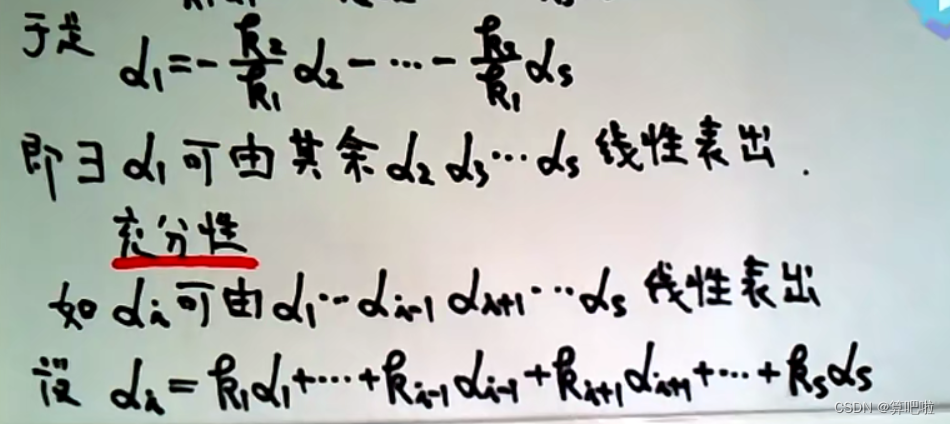 于是 α₁=-k₂/k₁ α₂-⋯-k₂/k₁ αs
即∃α₁可由其余α₂ α₃⋯αs 线性表出.
充分性
如αi可由α₁⋯αi-1 αi+1⋯αs 线性表出
设 αi=k₁α₁+⋯+ki-1αi-1+ki+1αi+1+⋯+ksαs
CSDN @算吧啦